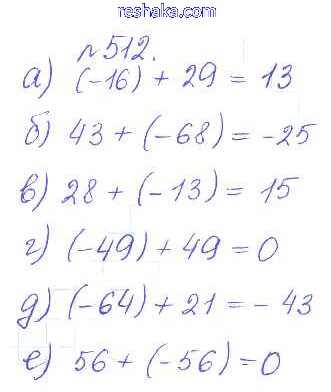 reshaka.com
№512.
а) (-16) + 29 = 13
б) 43 + (-68) = -25
в) 28 + (-13) = 15
г) (-49) + 49 = 0
д) (-64) + 21 = - 43
е) 56 + (-56) = 0